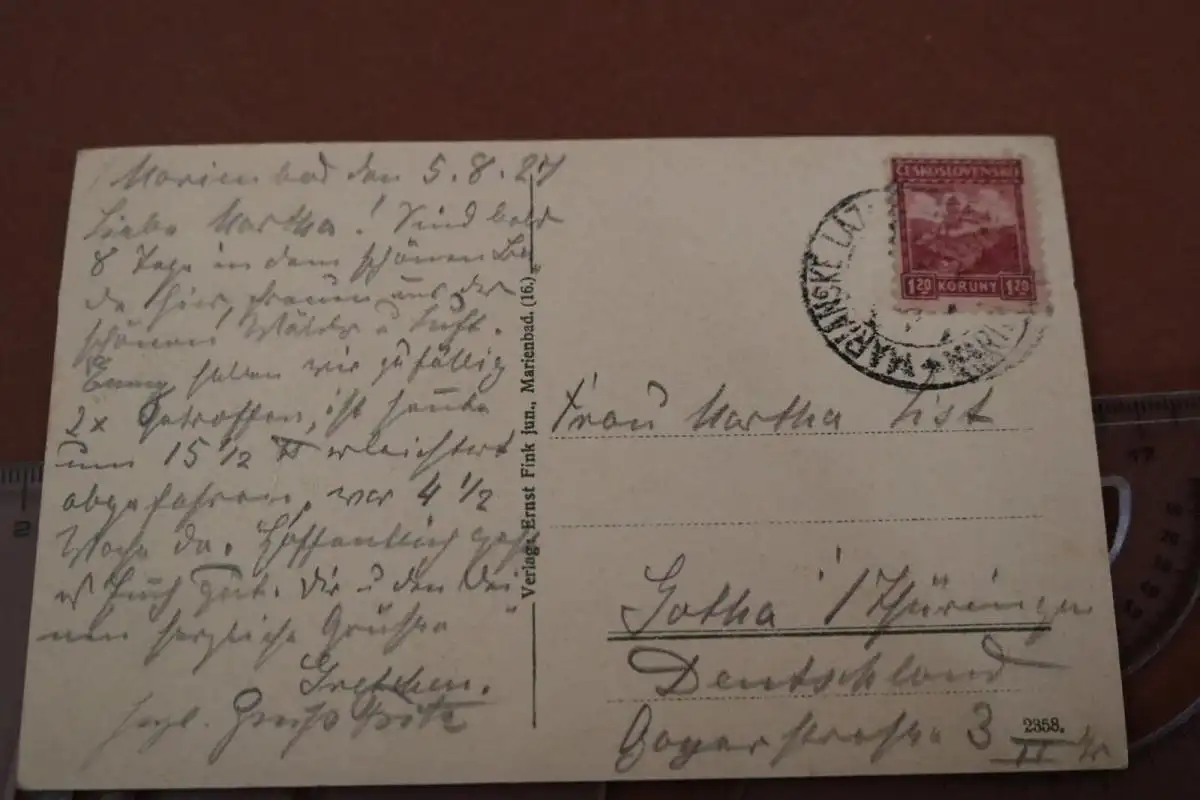 Marienbad den 5.8.27
Liebe Martha! Sind bald
8 Tage in dem schönen Ba
de hier, freuen uns der
schönen Wälder u Luft.
haben wir zufällig
2x getroffen, ist heute
um 15 1/2 ℔ erleichtert
abgefahren, war 4 1/2
Woche da. Hoffentlich geht
es Euch gut. Dir u den Dei
nen herzliche Grüße
Gretchen.
herzl. Gruß Fritz
Verlag: Ernst Fink jun., Marienbad. (16.)
ČESKOSLOVENSKO
1.20 KORUNY 1.20
MARIÁNSKÉ LÁZ
MARIE
Frau Martha List
Gotha / Thüringen
Deutschland
3 II
2358.